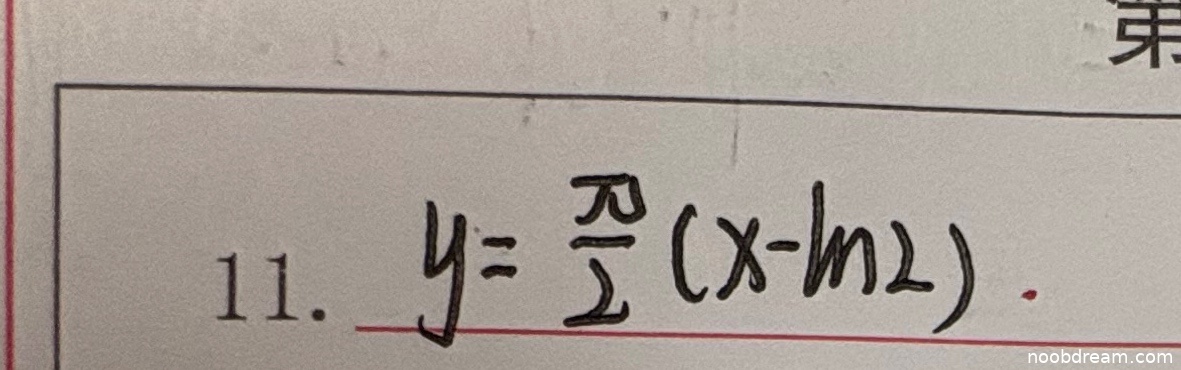 第
11. y = π/2 (x-ln2).
noobdream.com